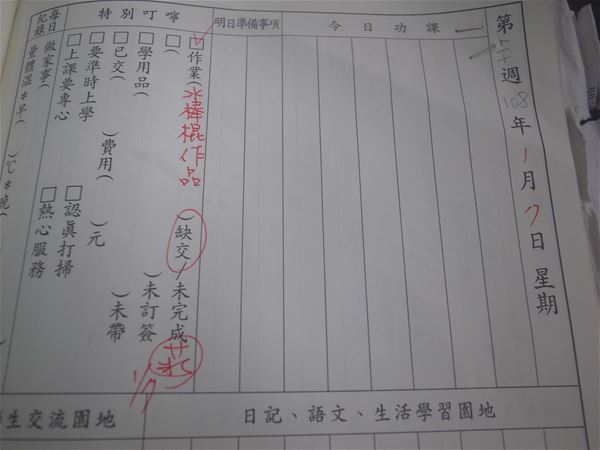 第二十週 108年1月7日 星期
今日功課
明日準備事項
特別叮嚀
每日紀錄
□作業(冰棒棍作品)缺交/未完成
□( )未訂簽
□學用品( )未帶
□已交( )費用( )元
□要準時上學 □認真打掃
□上課要專心 □熱心服務
做家事(
量體溫*早( )℃*晚(
1/7
日記、語文、生活學習園地
生交流園地